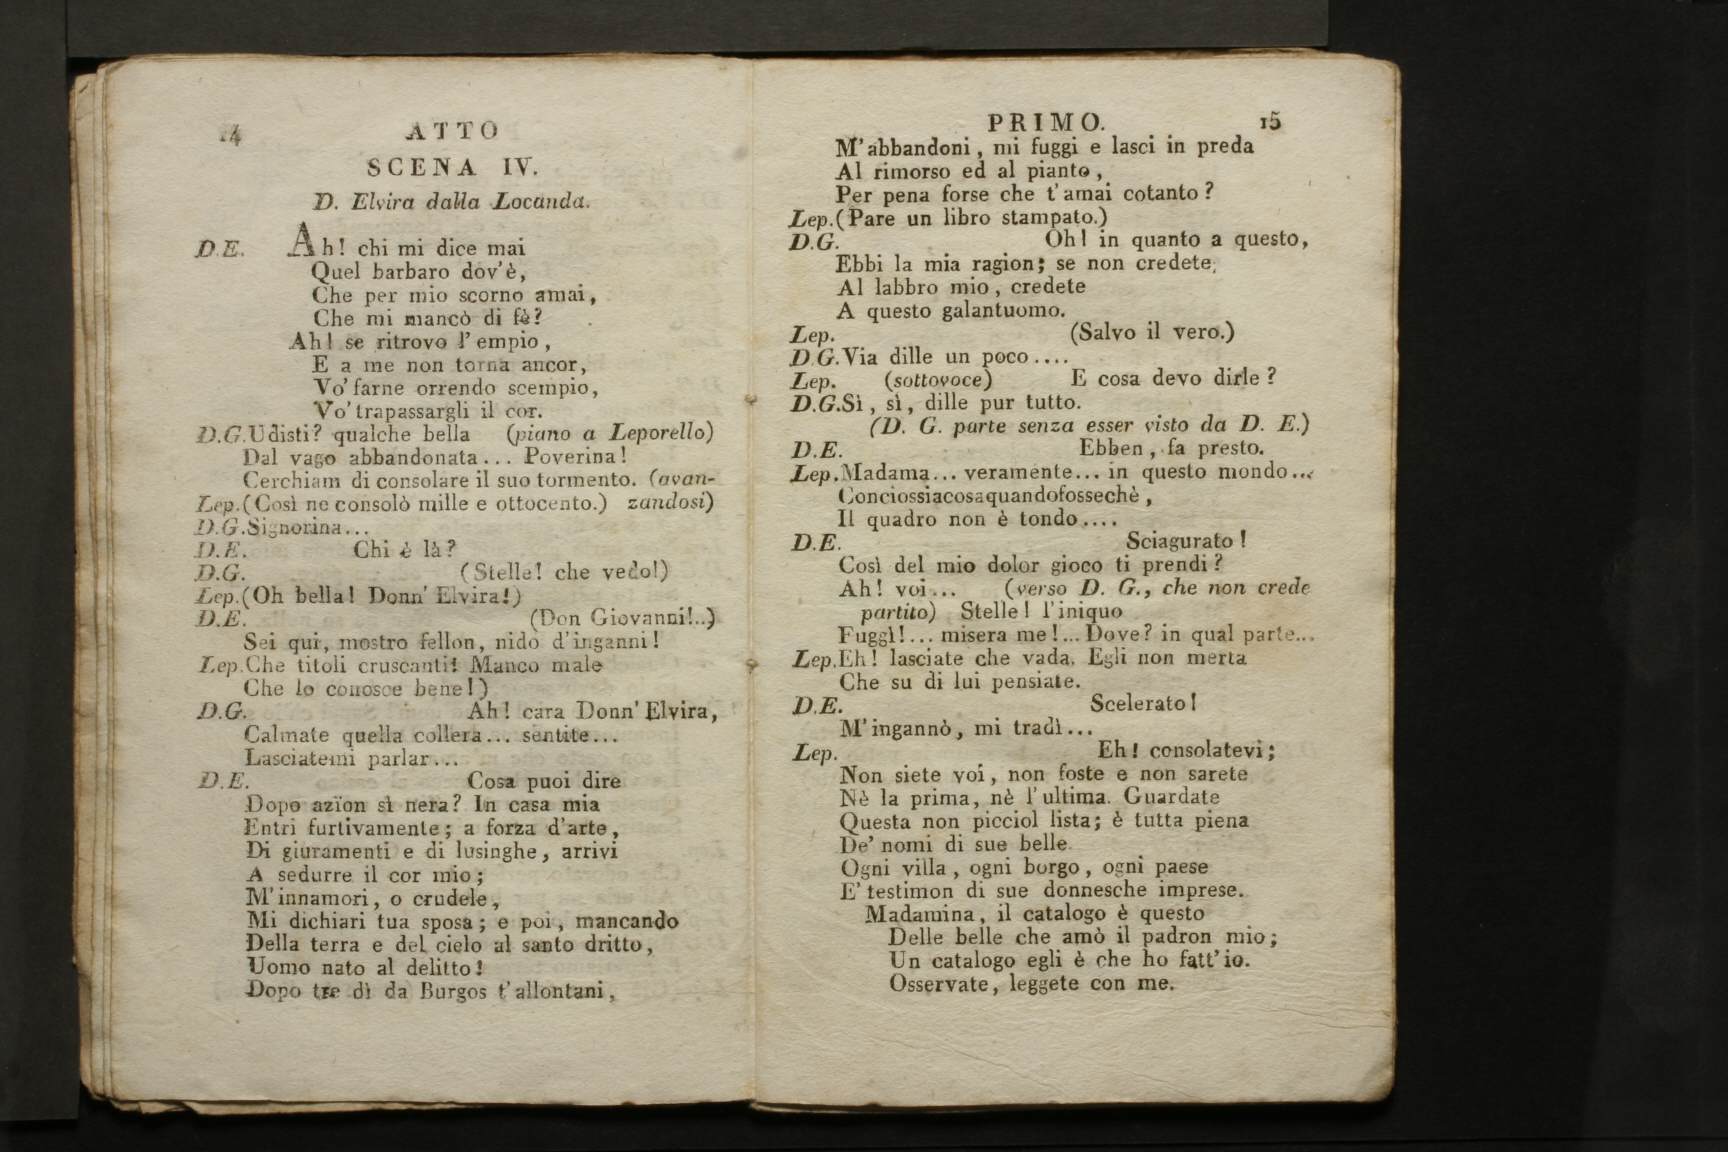 14 ATTO
SCENA IV.
D. Elvira dalla Locanda.
D.E. Ah! chi mi dice mai
Quel barbaro dov'è,
Che per mio scorno amai,
Che mi mancò di fè?
Ah! se ritrovo l'empio,
E a me non torna ancor,
Vo' farne orrendo scempio,
Vo' trapassargli il cor.
D.G. Udisti? qualche bella (piano a Leporello)
Dal vago abbandonata... Poverina!
Cerchiam di consolare il suo tormento. (avan-
Lep. (Così ne consolò mille e ottocento.) zandosi)
D.G. Signorina...
D.E. Chi è là?
D.G. (Stelle! che vedo!)
Lep. (Oh bella! Donn' Elvira!)
D.E. (Don Giovanni!..)
Sei qui, mostro fellon, nido d'inganni!
Lep. Che titoli cruscanti! Manco male
Che lo conosce bene!)
D.G. Ah! cara Donn' Elvira,
Calmate quella collera... sentite...
Lasciatemi parlar...
D.E. Cosa puoi dire
Dopo azïon sì nera? In casa mia
Entri furtivamente; a forza d'arte,
Di giuramenti e di lusinghe, arrivi
A sedurre il cor mio;
M'innamori, o crudele,
Mi dichiari tua sposa; e poi, mancando
Della terra e del cielo al santo dritto,
Uomo nato al delitto!
Dopo tre dì da Burgos t'allontani,
PRIMO. 15
M'abbandoni, mi fuggi e lasci in preda
Al rimorso ed al pianto,
Per pena forse che t'amai cotanto?
Lep. (Pare un libro stampato.)
D.G. Oh! in quanto a questo,
Ebbi la mia ragion; se non credete
Al labbro mio, credete
A questo galantuomo.
Lep. (Salvo il vero.)
D.G. Via dille un poco....
Lep. (sottovoce) E cosa devo dirle?
D.G. Sì, sì, dille pur tutto.
(D. G. parte senza esser visto da D. E.)
D.E. Ebben, fa presto.
Lep. Madama... veramente... in questo mondo...
Conciossiacosaquandofossechè,
Il quadro non è tondo....
D.E. Sciagurato!
Così del mio dolor gioco ti prendi?
Ah! voi... (verso D. G., che non crede
partito) Stelle! l'iniquo
Fuggì!... misera me!... Dove? in qual parte...
Lep. Eh! lasciate che vada. Egli non merta
Che su di lui pensiate.
D.E. Scelerato!
M'ingannò, mi tradì...
Lep. Eh! consolatevi;
Non siete voi, non foste e non sarete
Nè la prima, nè l'ultima. Guardate
Questa non picciol lista; è tutta piena
De' nomi di sue belle
Ogni villa, ogni borgo, ogni paese
E' testimon di sue donnesche imprese.
Madamina, il catalogo è questo
Delle belle che amò il padron mio;
Un catalogo egli è che ho fatt'io.
Osservate, leggete con me.